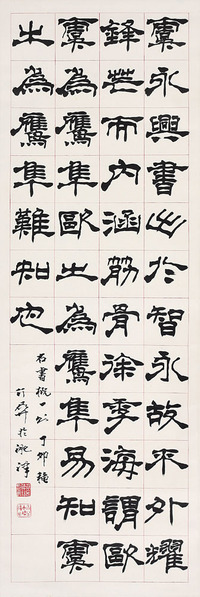 虞永興書出於智永故不外耀
鋒芒而內涵筋骨徐季海謂歐
虞為鷹隼歐之為鷹隼易知虞
之為鷹隼難知也
右書概 丁卯
於